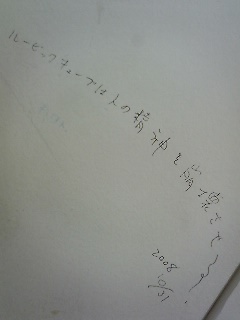 ルービックキューブは人の精神を崩壊させる。
2008
10/31